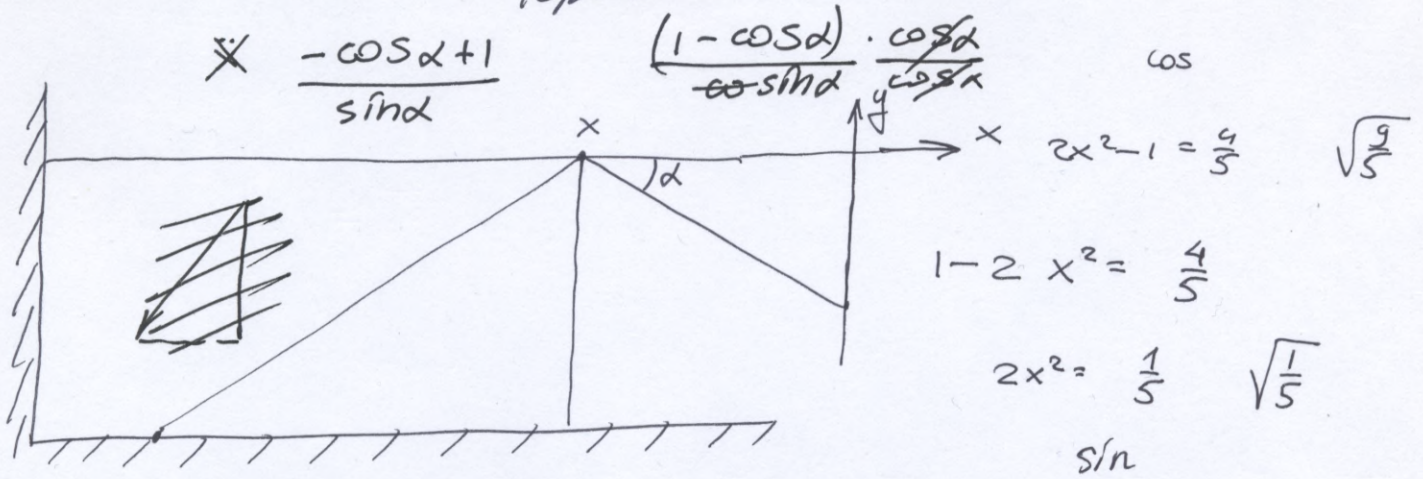 Ẍ (-cosα+1)/sinα (1-cosα)/sinα · cosα/cosα cos
x
y
x 2x²-1 = 4/5 √(9/5)
α
1-2 x² = 4/5
2x² = 1/5 √(1/5)
sin